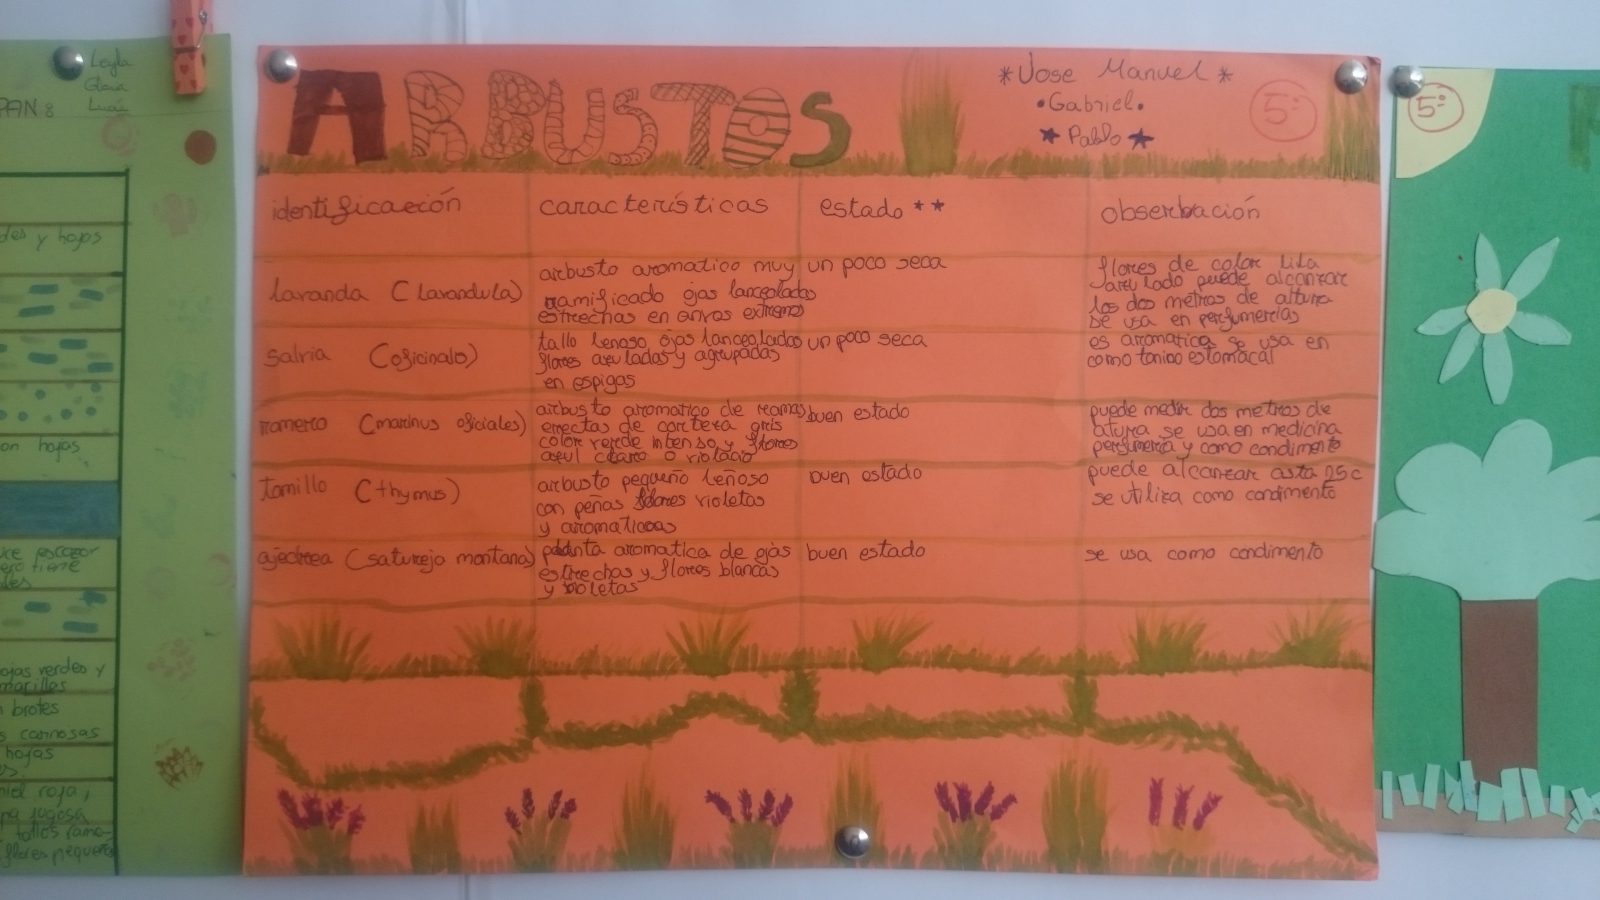 ARBUSTOS
*Jose Manuel*
•Gabriel•
★Pablo★
5º
identificación
características
estado **
obserbación
lavanda (lavandula)
arbusto aromatico muy
ramificado ojas lanceoladas
estrechas en anvos extremos
un poco seca
flores de color lila
azulado puede alcanzar
los dos metros de altura
se usa en perfumerias
salvia (oficinalis)
tallo leñoso ojas lanceoladas
flores azuladas y agrupadas
en espigas
un poco seca
es arromatica se usa en
como tonino estomacal
romero (marinus oficiales)
arbusto aromatico de ramas
errectas de corteza gris
color verde intenso y flores
azul claro o violacio
buen estado
puede medir dos metros de
atura se usa en medicina
perfumeria y como condimento
tomillo (thymus)
arbusto pequeño leñoso
con peñas flores violetas
y aromaticas
buen estado
puede alcanzar asta 25 c
se utiliza como condimento
ajedrea (saturejo montana)
planta aromatica de ojas
estrechas y flores blancas
y violetas
buen estado
se usa como condimento
Leyla
Gloria
Lucía
PAN:
des y hojas
on hojas
uce escozor
ero tiene
les
ojas verdes y
marillas
n brotes
s carnosas
hojas
es.
niel roja,
pa jugosa
y tallos ramo-
flores pequeñas
5º